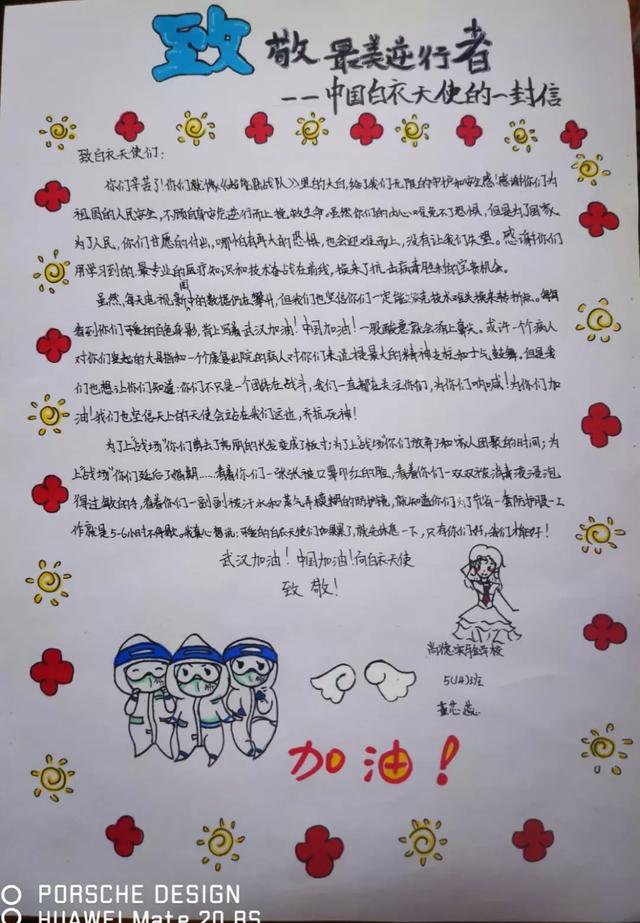 致敬最美逆行者
——中国白衣天使的一封信
致白衣天使们：
你们辛苦了！你们就像《超能陆战队》里的大白，给了我们无限的守护和安全感！感谢你们为
祖国的人民安全，不顾自身安危逆行而上，拯救生命。虽然你们的内心难免不了恐惧，但是为了国家，
为了人民，你们甘愿的付出，哪怕有再大的恐惧，也会迎难而上，没有让我们失望。感谢你们
用学习到的，最专业的医疗知识和技术奋战在前线，换来了抗击病毒胜利的宝贵机会。
虽然，每天电视新闻中的数据仍在攀升，但我们也坚信你们一定能攻克技术难关换来转折
看到你们可爱的白色身影，背上写着武汉加油！中国加油！一股酸意就会涌上鼻尖。或许一个病人
对你们竖起的大母指和一个康复出院的病人对你们来说是最大的精神支柱和士气鼓舞。但是我
们也想让你们知道：你们不只是一个团队在战斗，我们一直都在关注你们，为你们呐喊！为你们加
油！我们也坚信天上的天使会站在我们这边，齐抗死神！
为了上“战场”你们剪去了秀丽的长发变成了板寸；为了上“战场”你们放弃了和家人团聚的时间；为
上“战场”你们延后了婚期……看着你们一张张被口罩印红的脸，看着你们一双双被消毒液浸泡
得过敏的手，看着你们一副副被汗水和蒸气弄模糊的防护镜，就知道你们为了节省一套防护服一工
作就是5-6小时不停歇。我真心想说：可爱的白衣天使们如果累了就先休息一下，只有你们好，我们才能好！
武汉加油！中国加油！向白衣天使
致敬！
学校
5(4)班
加油！
PORSCHE DESIGN
HUAWEI Mate 20 RS